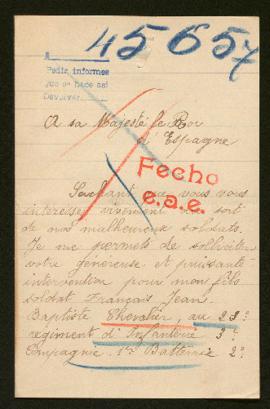 45657
Pedir informes
A sa Majesté le Roi
d'Espagne
Fecho
e.a.e.
Sachant que vous vous
intéressez vivement au sort
de nos malheureux soldats.
Je me permets de solliciter
votre généreuse et puissante
intervention pour mon fils
soldat Français Jean.
Baptiste Chevalier, au 28e
regiment d'Infanterie 3e
Compagnie